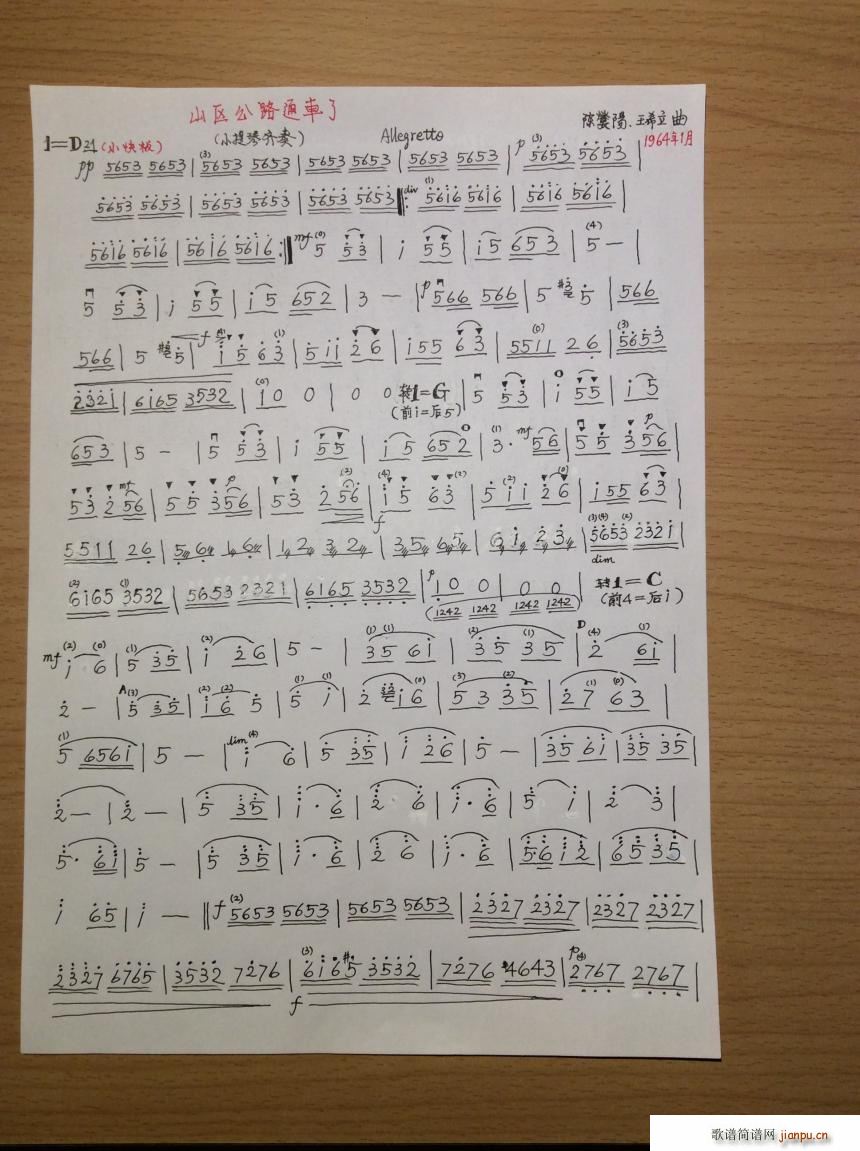 山区公路通車了
(小提琴齐奏) Allegretto 王希立曲
1=D 24 (小快板) 1964年1月
pp 5653 5653 | 5653 5653 | 5653 5653 | 5653 5653 | p 5653 5653 |
5653 5653 | 5653 5653 | 5653 5653 div 5616 5616 | 5616 5616 |
5616 5616 | 5616 5616 mf 5 53 | i 55 | i5 653 | 5 — |
5 53 | i 55 | i5 652 | 3 — | p 566 566 | 5 #3 5 | 566
566 | 5 5 | f i5 63 | 5ii 26 | i55 63 | 5511 26 | 5653
2321 | 6165 3532 | 10 0 | 0 0 转1=G | 5 53 | i 55 | i5
(前i=后5)
653 | 5 — | 5 53 | i 55 | i5 652 | 3· mf 56 | 55 356 |
53 256 | 55 356 | 53 256 | i5 63 | 5ii 26 | i55 63 |
5511 26 | 56 16 | 12 32 | 35 65 | 6i 23 | 5653 2321 |
dim
6165 3532 | 5653 2321 | 6165 3532 | p 10 0 | 0 0 转1=C
(1242 1242 1242 1242) (前4=后i)
mf i 6 | 5 35 | i 26 | 5 — | 35 6i | 35 35 | 2 6i |
2 — | 5 35 | i6 5 | 5 i | 2 i6 | 53 35 | 27 63 |
5 656i | 5 — | dim i 6 | 5 35 | i 26 | 5 — | 35 6i | 35 35 |
2 — | 2 — | 5 35 | i· 6 | 2 6 | i· 6 | 5 i | 2 3 |
5· 6i | 5 — | 5 35 | i· 6 | 2 6 | i· 6 | 5·6 i2 | 65 35 |
i 65 | i — || f 5653 5653 | 5653 5653 | 2327 2327 | 2327 2327 |
2327 6765 | 3532 7276 | 6i65 3532 | 7276 4643 | p 2767 2767 |
f
歌谱简谱网 jianpu.cn